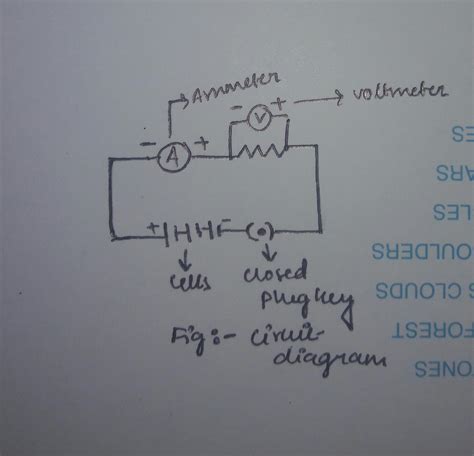 Ammeter
- +
voltmeter
- A +
V
ES
ARS
LES
OULDERS
S CLOUDS
FOREST
TONES
+ -
cells
closed
plug key
Fig:- Circuit
diagram